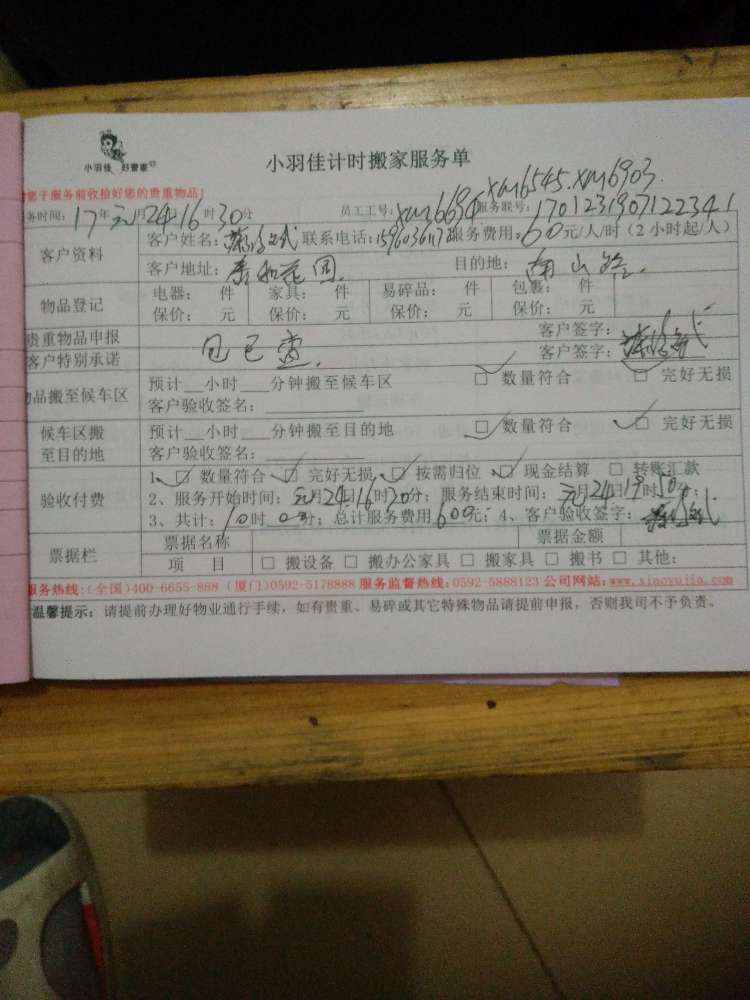 小羽佳 好管家
小羽佳计时搬家服务单
您于服务前收拾好您的贵重物品!
xm6545.xm6903.
务时间: 17年元月24 16时30分 员工工号: xm6694 服务联号: 1701231907122341
客户资料
客户姓名: 联系电话: 服务费用: 60元/人/时 (2小时起/人)
客户地址: 泰和花园. 目的地: 南山路.
物品登记
电器: 件 家具: 件 易碎品: 件 包裹: 件
保价: 元 保价: 元 保价: 元 保价: 元
贵重物品申报 客户签字:
客户特别承诺 包已查. 客户签字:
物品搬至候车区
预计__小时___分钟搬至候车区 □ 数量符合 □ 完好无损
客户验收签名:
候车区搬至目的地
预计__小时___分钟搬至目的地 □ 数量符合 □ 完好无损
客户验收签名:
验收付费
1、□ 数量符合 □ 完好无损 □ 按需归位 □ 现金结算 □ 转账汇款
2、服务开始时间: 元月24日16时20分; 服务结束时间: 元月24日19时50分;
3、共计: 10时00分; 总计服务费用600元; 4、客户验收签字:
票据栏
票据名称 票据金额
项 目 □ 搬设备 □ 搬办公家具 □ 搬家具 □ 搬书 □ 其他:
服务热线: (全国)400-6655-888 (厦门)0592-5178888 服务监督热线: 0592-5888123 公司网站: www.xiaoyujia.com
温馨提示: 请提前办理好物业通行手续, 如有贵重、易碎或其它特殊物品请提前申报, 否则我司不予负责。